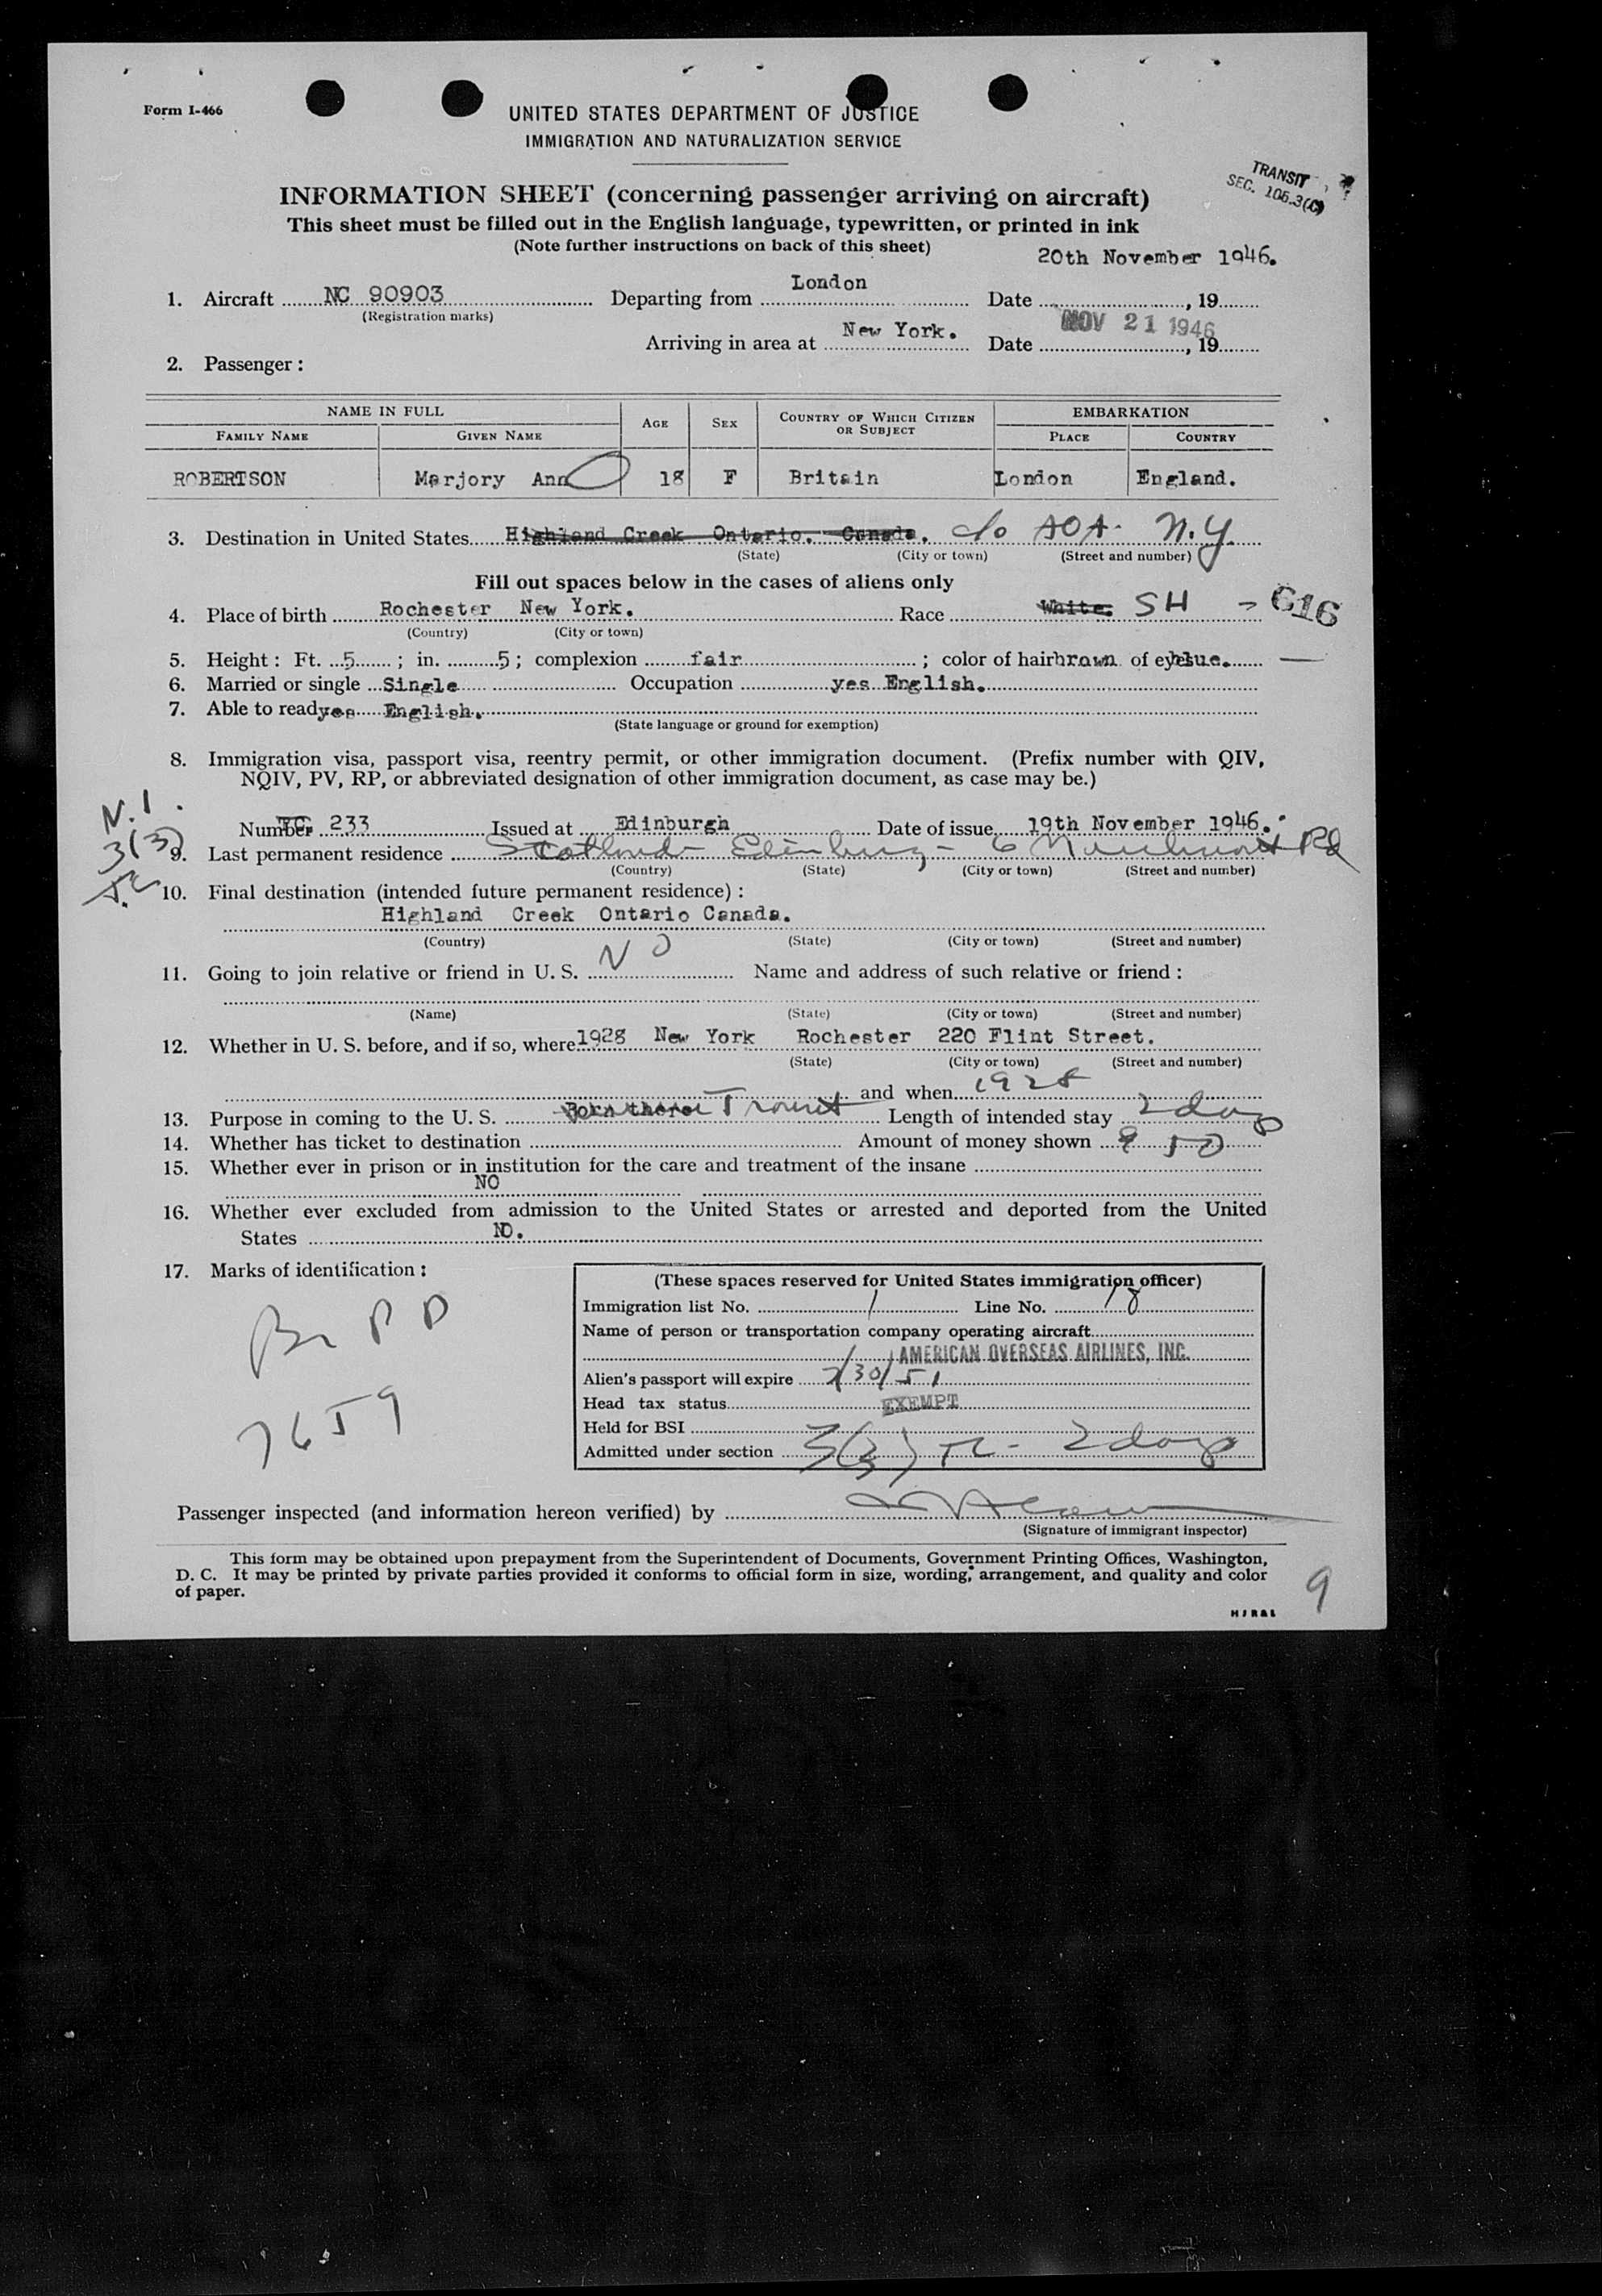 Form I-466
UNITED STATES DEPARTMENT OF JUSTICE
IMMIGRATION AND NATURALIZATION SERVICE
TRANSIT
SEC. 106.3(C)
INFORMATION SHEET (concerning passenger arriving on aircraft)
This sheet must be filled out in the English language, typewritten, or printed in ink
(Note further instructions on back of this sheet)
20th November 1946.
1. Aircraft NC 90903 Departing from London Date , 19
(Registration marks)
Arriving in area at New York. Date NOV 21 1946 , 19
2. Passenger :
NAME IN FULL AGE SEX COUNTRY OF WHICH CITIZEN OR SUBJECT EMBARKATION
FAMILY NAME GIVEN NAME PLACE COUNTRY
ROBERTSON Marjory Ann 18 F Britain London England.
3. Destination in United States Highland Creek Ontario. Canada. c/o AOA. N.Y.
(State) (City or town) (Street and number)
Fill out spaces below in the cases of aliens only
4. Place of birth Rochester New York. Race White. SH - 616
(Country) (City or town)
5. Height : Ft. 5 ; in. 5 ; complexion fair ; color of hair brown of eyes blue.
6. Married or single Single Occupation yes English.
7. Able to read yes English.
(State language or ground for exemption)
8. Immigration visa, passport visa, reentry permit, or other immigration document. (Prefix number with QIV,
NQIV, PV, RP, or abbreviated designation of other immigration document, as case may be.)
N.I.
3(3)
Number TC. 233 Issued at Edinburgh Date of issue 19th November 1946.
9. Last permanent residence Scotland Edinburg - 6 Rd
(Country) (State) (City or town) (Street and number)
10. Final destination (intended future permanent residence) :
Highland Creek Ontario Canada.
(Country) (State) (City or town) (Street and number)
11. Going to join relative or friend in U. S. NO Name and address of such relative or friend :
(Name) (State) (City or town) (Street and number)
12. Whether in U. S. before, and if so, where 1928 New York Rochester 220 Flint Street.
(State) (City or town) (Street and number)
and when 1928
13. Purpose in coming to the U. S. Born there Transit Length of intended stay 2 days
14. Whether has ticket to destination Amount of money shown $ 50
15. Whether ever in prison or in institution for the care and treatment of the insane
NO
16. Whether ever excluded from admission to the United States or arrested and deported from the United
States NO.
17. Marks of identification :
Br PP
7659
(These spaces reserved for United States immigration officer)
Immigration list No. 1 Line No. 18
Name of person or transportation company operating aircraft
AMERICAN OVERSEAS AIRLINES, INC.
Alien's passport will expire 7/30/51
Head tax status EXEMPT
Held for BSI
Admitted under section 3(3) TC - 2 days
Passenger inspected (and information hereon verified) by
(Signature of immigrant inspector)
This form may be obtained upon prepayment from the Superintendent of Documents, Government Printing Offices, Washington,
D. C. It may be printed by private parties provided it conforms to official form in size, wording, arrangement, and quality and color
of paper.
9